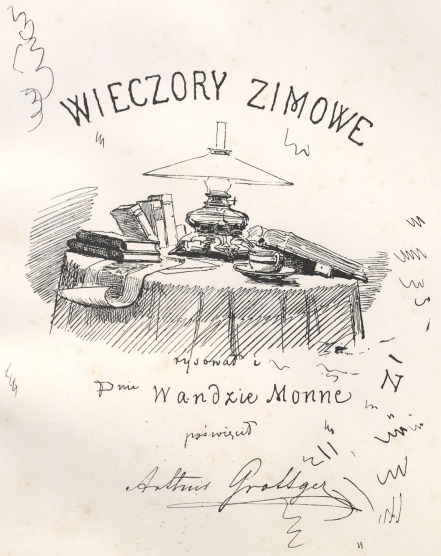 WIECZORY ZIMOWE
rysował i
Pnie Wandzie Monne
poświęcił
Arthur Grottger